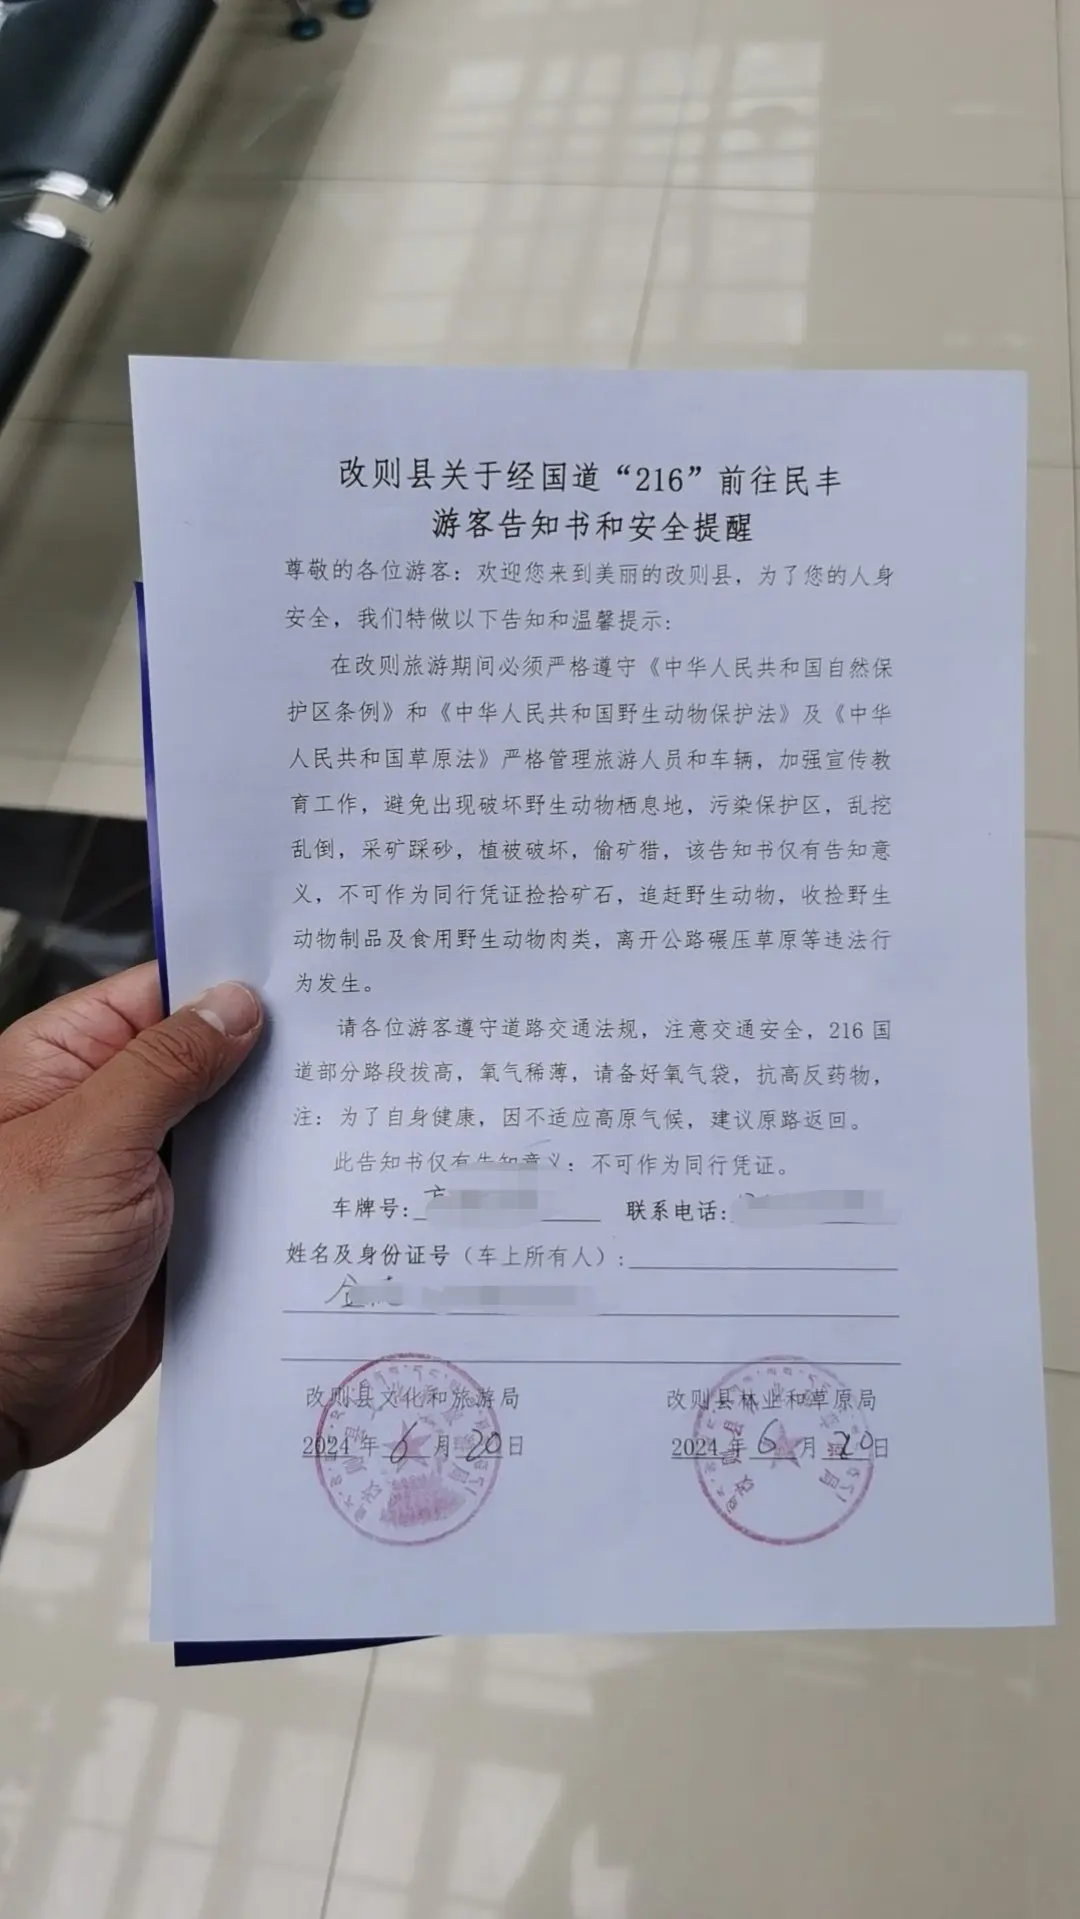 改则县关于经国道“216”前往民丰
游客告知书和安全提醒
尊敬的各位游客：欢迎您来到美丽的改则县，为了您的人身
安全，我们特做以下告知和温馨提示：
在改则旅游期间必须严格遵守《中华人民共和国自然保
护区条例》和《中华人民共和国野生动物保护法》及《中华
人民共和国草原法》严格管理旅游人员和车辆，加强宣传教
育工作，避免出现破坏野生动物栖息地，污染保护区，乱挖
乱倒，采矿踩砂，植被破坏，偷矿猎，该告知书仅有告知意
义，不可作为同行凭证捡拾矿石，追赶野生动物，收捡野生
动物制品及食用野生动物肉类，离开公路碾压草原等违法行
为发生。
请各位游客遵守道路交通法规，注意交通安全，216 国
道部分路段拔高，氧气稀薄，请备好氧气袋，抗高反药物，
注：为了自身健康，因不适应高原气候，建议原路返回。
此告知书仅有告知意义：不可作为同行凭证。
车牌号： 联系电话：
姓名及身份证号（车上所有人）：
改则县文化和旅游局 改则县林业和草原局
2024 年 6 月 20 日 2024 年 6 月 20 日